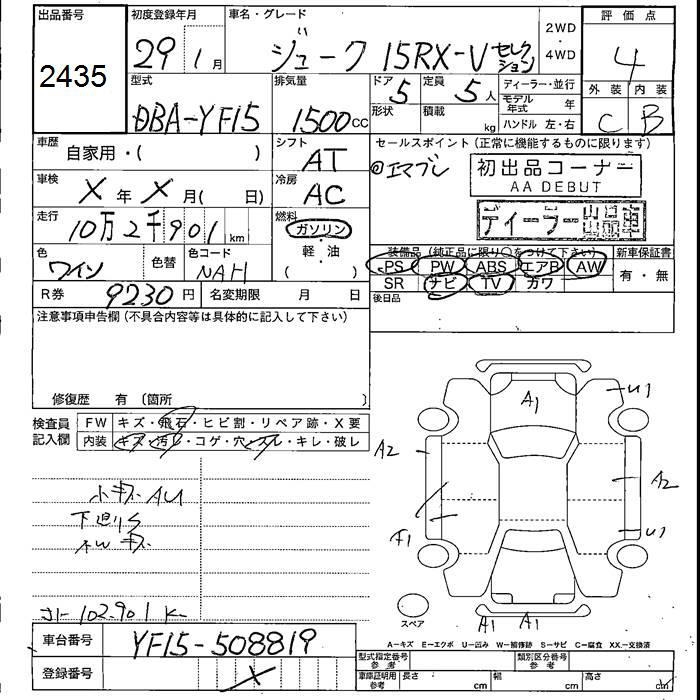 出品番号
2435
初度登録年月
29 1月
車名・グレード
ジューク 15RX-V セレクション
2WD
・
4WD
評価点
4
外装 内装
C B
型式
DBA-YF15
排気量
1500cc
ドア 5
定員 5人
形状
積載 kg
ディーラー・並行
モデル年式 年
ハンドル 左・右
車歴
自家用・( )
シフト
AT
セールスポイント(正常に機能するものに限ります)
エマブレ
初出品コーナー
AA DEBUT
ディーラー出品車
車検
X年X月( 日)
冷房
AC
走行
10万2千901km
燃料
ガソリン
・
軽・油
( )
色
ワイン
色替
色コード
NAH
装備品(純正品に限り○をつけて下さい)
PS PW ABS エアB AW
SR ナビ TV カワ
後日品
新車保証書
有・無
R券 9230円
名変期限 月 日
注意事項申告欄(不具合内容等は具体的に記入して下さい)
修復歴 有 〔箇所 〕
検査員記入欄
FW キズ・飛石・ヒビ割・リペア跡・X要
内装 キズ・汚レ・コゲ・穴・スレ・キレ・破レ
小キズ AU
下廻りS
キズ
102.901K
A1
U1
A2
A2
F1
U1
A1 A1
スペア
A-キズ E-エクボ U-凹み W-補修跡 S-サビ C-腐食 XX-交換済
車台番号 YF15-508819
登録番号 X
型式指定番号
参考
類別区分番号
参考
車庫証明用
参考
長さ cm
幅 cm
高さ cm